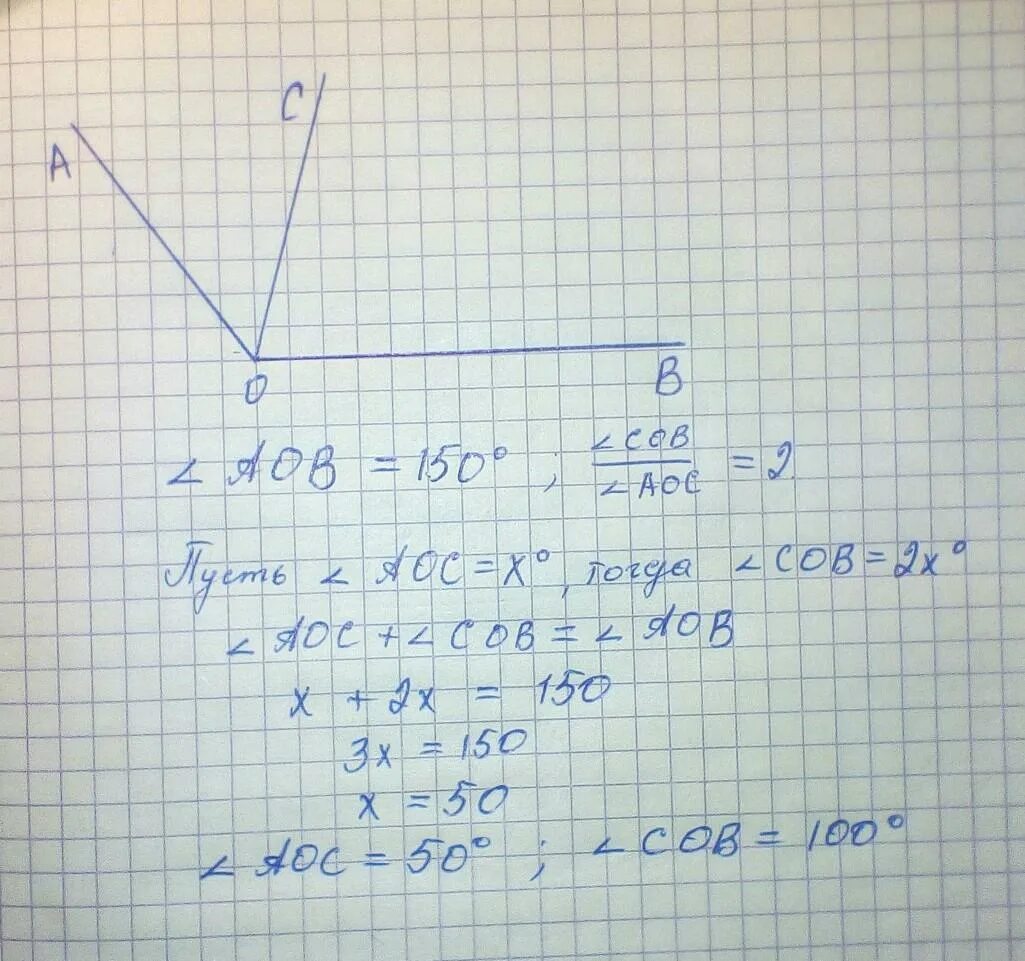 C
A
O
B
∠ AOB = 150° ; ∠COB / ∠AOC = 2
Пусть ∠ AOC = x°, тогда ∠ COB = 2x°
∠ AOC + ∠ COB = ∠ AOB
x + 2x = 150
3x = 150
x = 50
∠ AOC = 50° ; ∠ COB = 100°